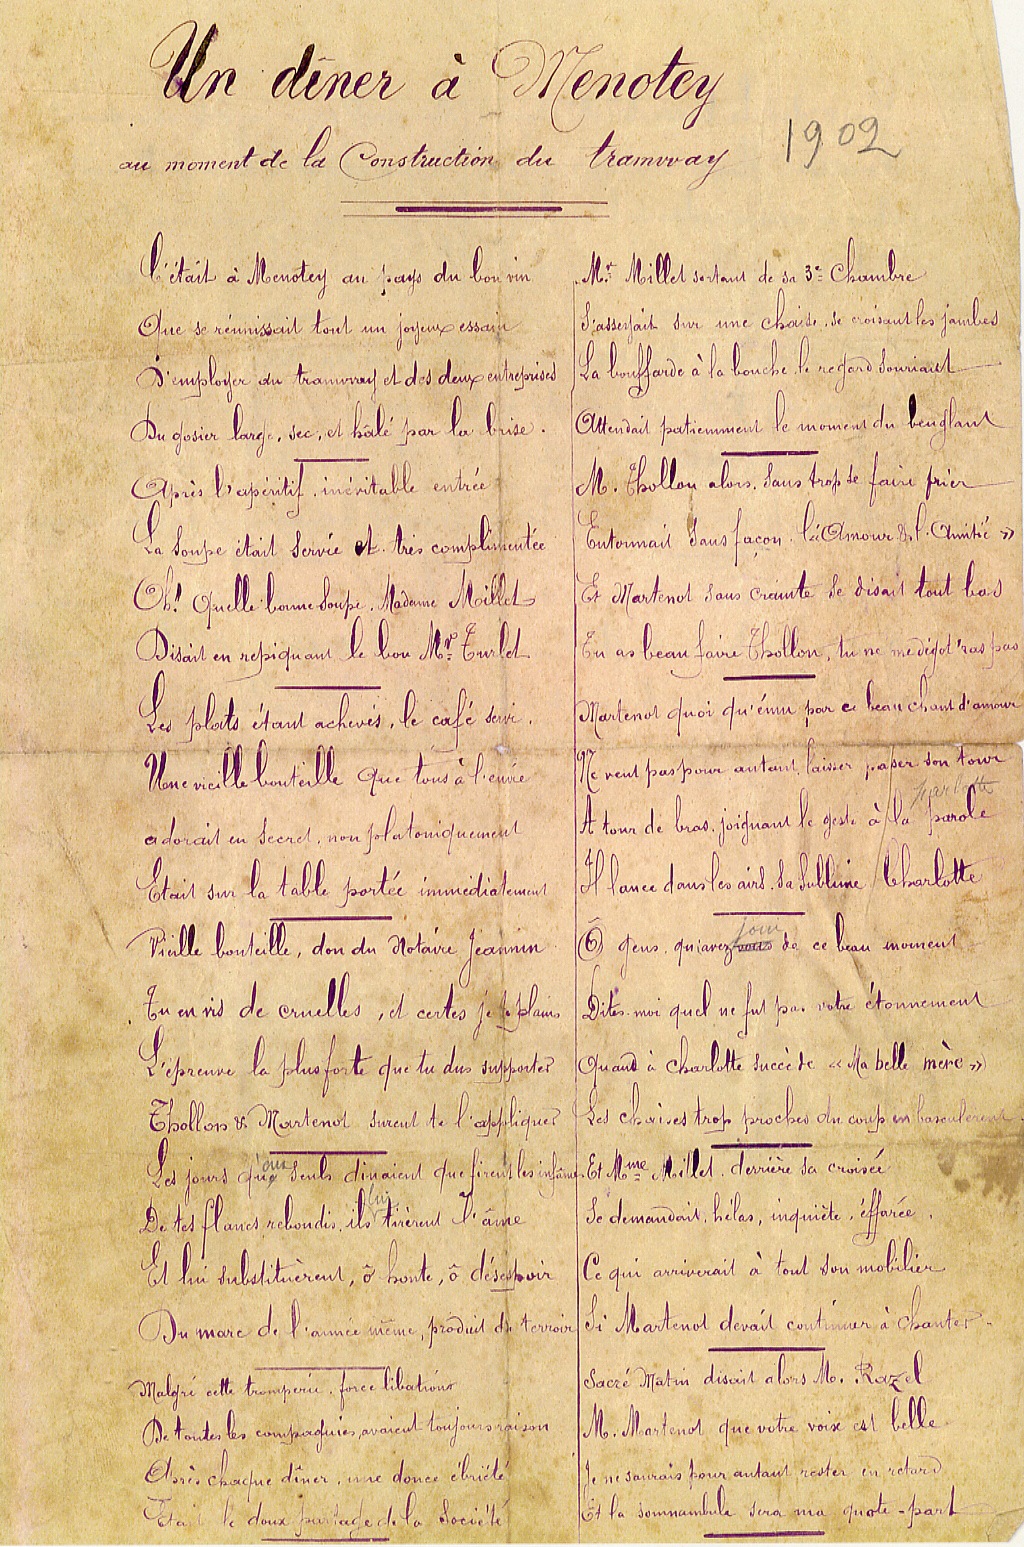 Un dîner à Menotey
1902
au moment de la Construction du tramway
C'était à Menotey au pays du bon vin
Que se réunissait tout un joyeux essain
D'employer du tramway et des deux entreprises
Du gosier large, sec, et hâlé par la brise.
Après l'apéritif, inévitable entrée
La soupe était servie et très complimentée
Oh! Quelle bonne soupe, Madame Millet
Disait en repiquant le bon Mr. Turlet
Les plats étant achevés, le café servi,
Une vieille bouteille que tous à l'envie
adorait en secret, non platoniquement
Etait sur la table portée immédiatement
Vieille bouteille, don du Notaire Jeannin
Tu en vis de cruelles, et certes je te plains
L'épreuve la plus forte que tu dus supporter
Thollon & Martenot surent te l'appliquer
Les jours qu'eux seuls dinaient que firent les infâmes
De tes flancs rebondis, ils lui tirèrent l'âme
Et lui substituèrent, ô honte, ô désespoir
Du marc de l'année même, produit du terroir
Malgré cette tromperie, force libations
De toutes les compagnies, avaient toujours raison
Après chaque dîner, une douce ébriété
Etait le doux partage de la Société
Mr. Millet sortant de sa 3e Chambre
S'asseyait sur une chaise, se croisant les jambes
La bouffarde à la bouche, le regard souriant
Attendait patiemment le moment du beuglant
M. Thollon alors, sans trop se faire prier
Entonnait sans façon, "l'Amour & l'Amitié"
Et Martenot sans crainte se disait tout bas
Tu as beau faire Thollon, tu ne me dégot'ras pas
Martenot quoi qu'ému par ce beau chant d'amour
Ne veut pas pour autant, laisser passer son tour
A tour de bras, joignant le geste à la parole
Il lance dans les airs, sa sublime Charlotte
Ô gens, qui avez joui de ce beau moment
Dites-moi quel ne fut pas votre étonnement
Quand à charlotte succède «Ma belle mère»
Les chaises trop proches du coup en basculèrent
Et Mme Millet, derrière sa croisée
Se demandait, hélas, inquiète, éffarée,
Ce qui arriverait à tout son mobilier
Si Martenot devait continuer à chanter.
Sacré Matin disait alors M. Razel
M. Martenot que votre voix est belle
Je ne saurais pour autant rester en retard
Et la somnambule sera ma quote-part